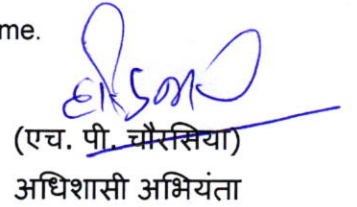 me.
(एच. पी. चौरसिया)
अधिशासी अभियंता